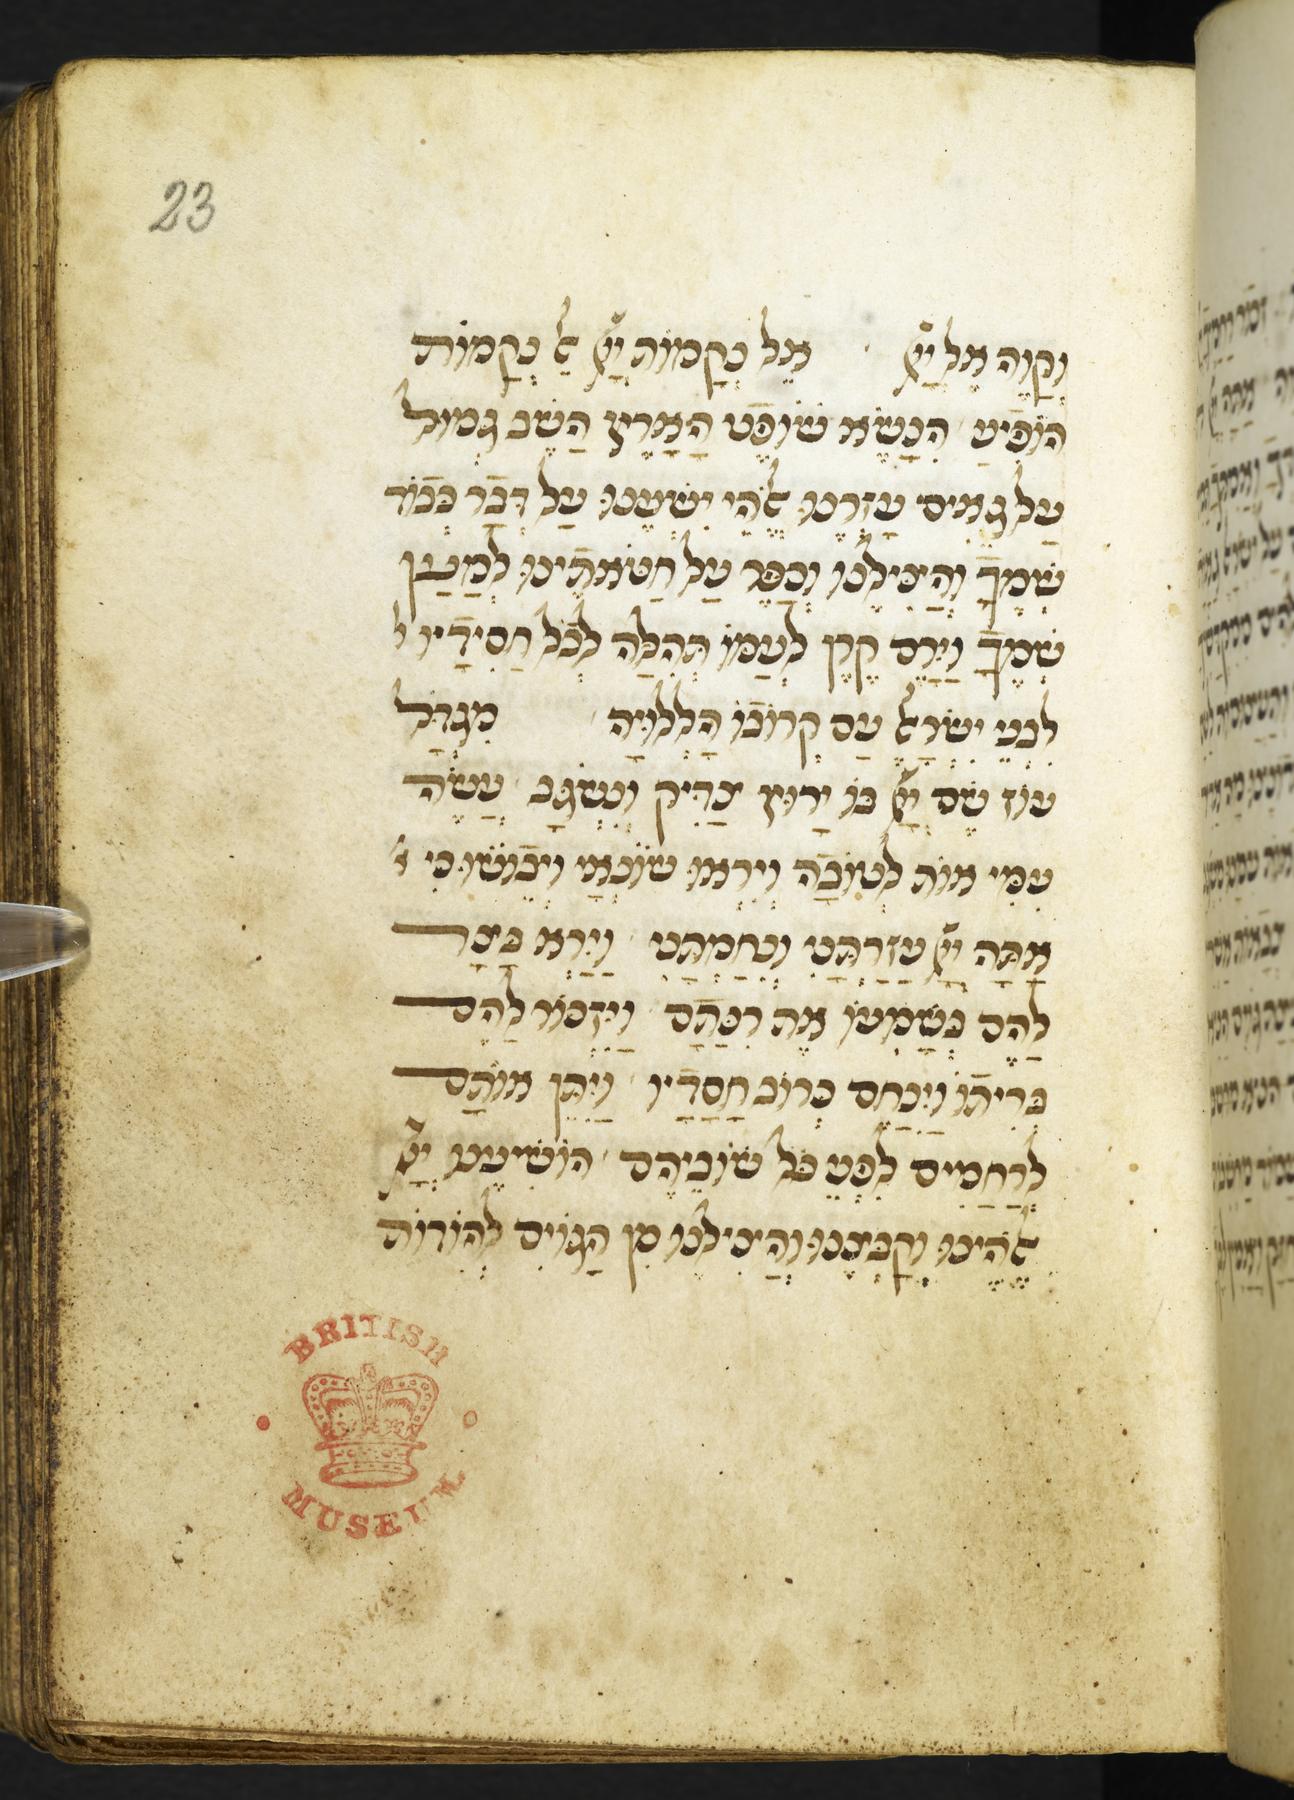 23
וְקַוֵּה אֶל יְיָ אֵל נְקָמוֹת יְיָ אֵל נְקָמוֹת
הוֹפִיעַ הִנָּשֵׂא שׁוֹפֵט הָאָרֶץ הָשֵׁב גְּמוּל
עַל גֵּאִים עָזְרֵנוּ אֱלֹהֵי יִשְׁעֵנוּ עַל דְּבַר כְּבוֹד
שְׁמֶךָ וְהַצִּילֵנוּ וְכַפֵּר עַל חַטֹּאתֵינוּ לְמַעַן
שְׁמֶךָ וַיָּרֶם קֶרֶן לְעַמּוֹ תְּהִלָּה לְכָל חֲסִידָיו ל
לִבְנֵי יִשְׂרָאֵל עַם קְרוֹבוֹ הַלְלוּיָהּ מִגְדַּל
עוֹז שֵׁם יְיָ בּוֹ יָרוּץ צַדִּיק וְנִשְׂגָּב עֲשֵׂה
עִמִּי אוֹת לְטוֹבָה וְיִרְאוּ שׂוֹנְאַי וְיֵבוֹשׁוּ כִּי א
אַתָּה יְיָ עֲזַרְתַּנִי וְנִחַמְתָּנִי וַיַּרְא בַּצַּר
לָהֶם בְּשָׁמְעוֹ אֶת רִנָּתָם וַיִּזְכּוֹר לָהֶם
בְּרִיתוֹ וַיִּנָּחֵם כְּרוֹב חֲסָדָיו וַיִּתֵּן אוֹתָם
לְרַחֲמִים לִפְנֵי כָּל שׁוֹבֵיהֶם הוֹשִׁיעֵנוּ יְיָ
אֱלֹהֵינוּ וְקַבְּצֵנוּ וְהַצִּילֵנוּ מִן הַגּוֹיִם לְהוֹדוֹת
BRITISH
MUSEUM